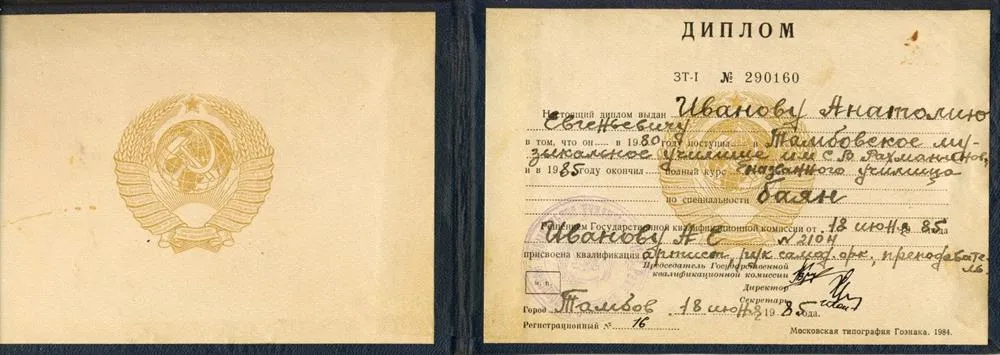 ДИПЛОМ
ЗТ-I № 290160
Настоящий диплом выдан Иванову Анатолию
Евгеньевичу
в том, что он в 1980 году поступил в Тамбовское му-
зыкальное училище им С. В. Рахманинова,
и в 1985 году окончил полный курс названного училища
по специальности баян
Решением Государственной квалификационной комиссии от 18 июня 1985 года
Иванову А Е № 2104
присвоена квалификация артист, рук самод. орк., преподаватель.
Председатель Государственной
квалификационной комиссии
Директор
М. П.
Секретарь
Город Тамбов 18 июня 1985 года.
Регистрационный № 16
Московская типография Гознака. 1984.